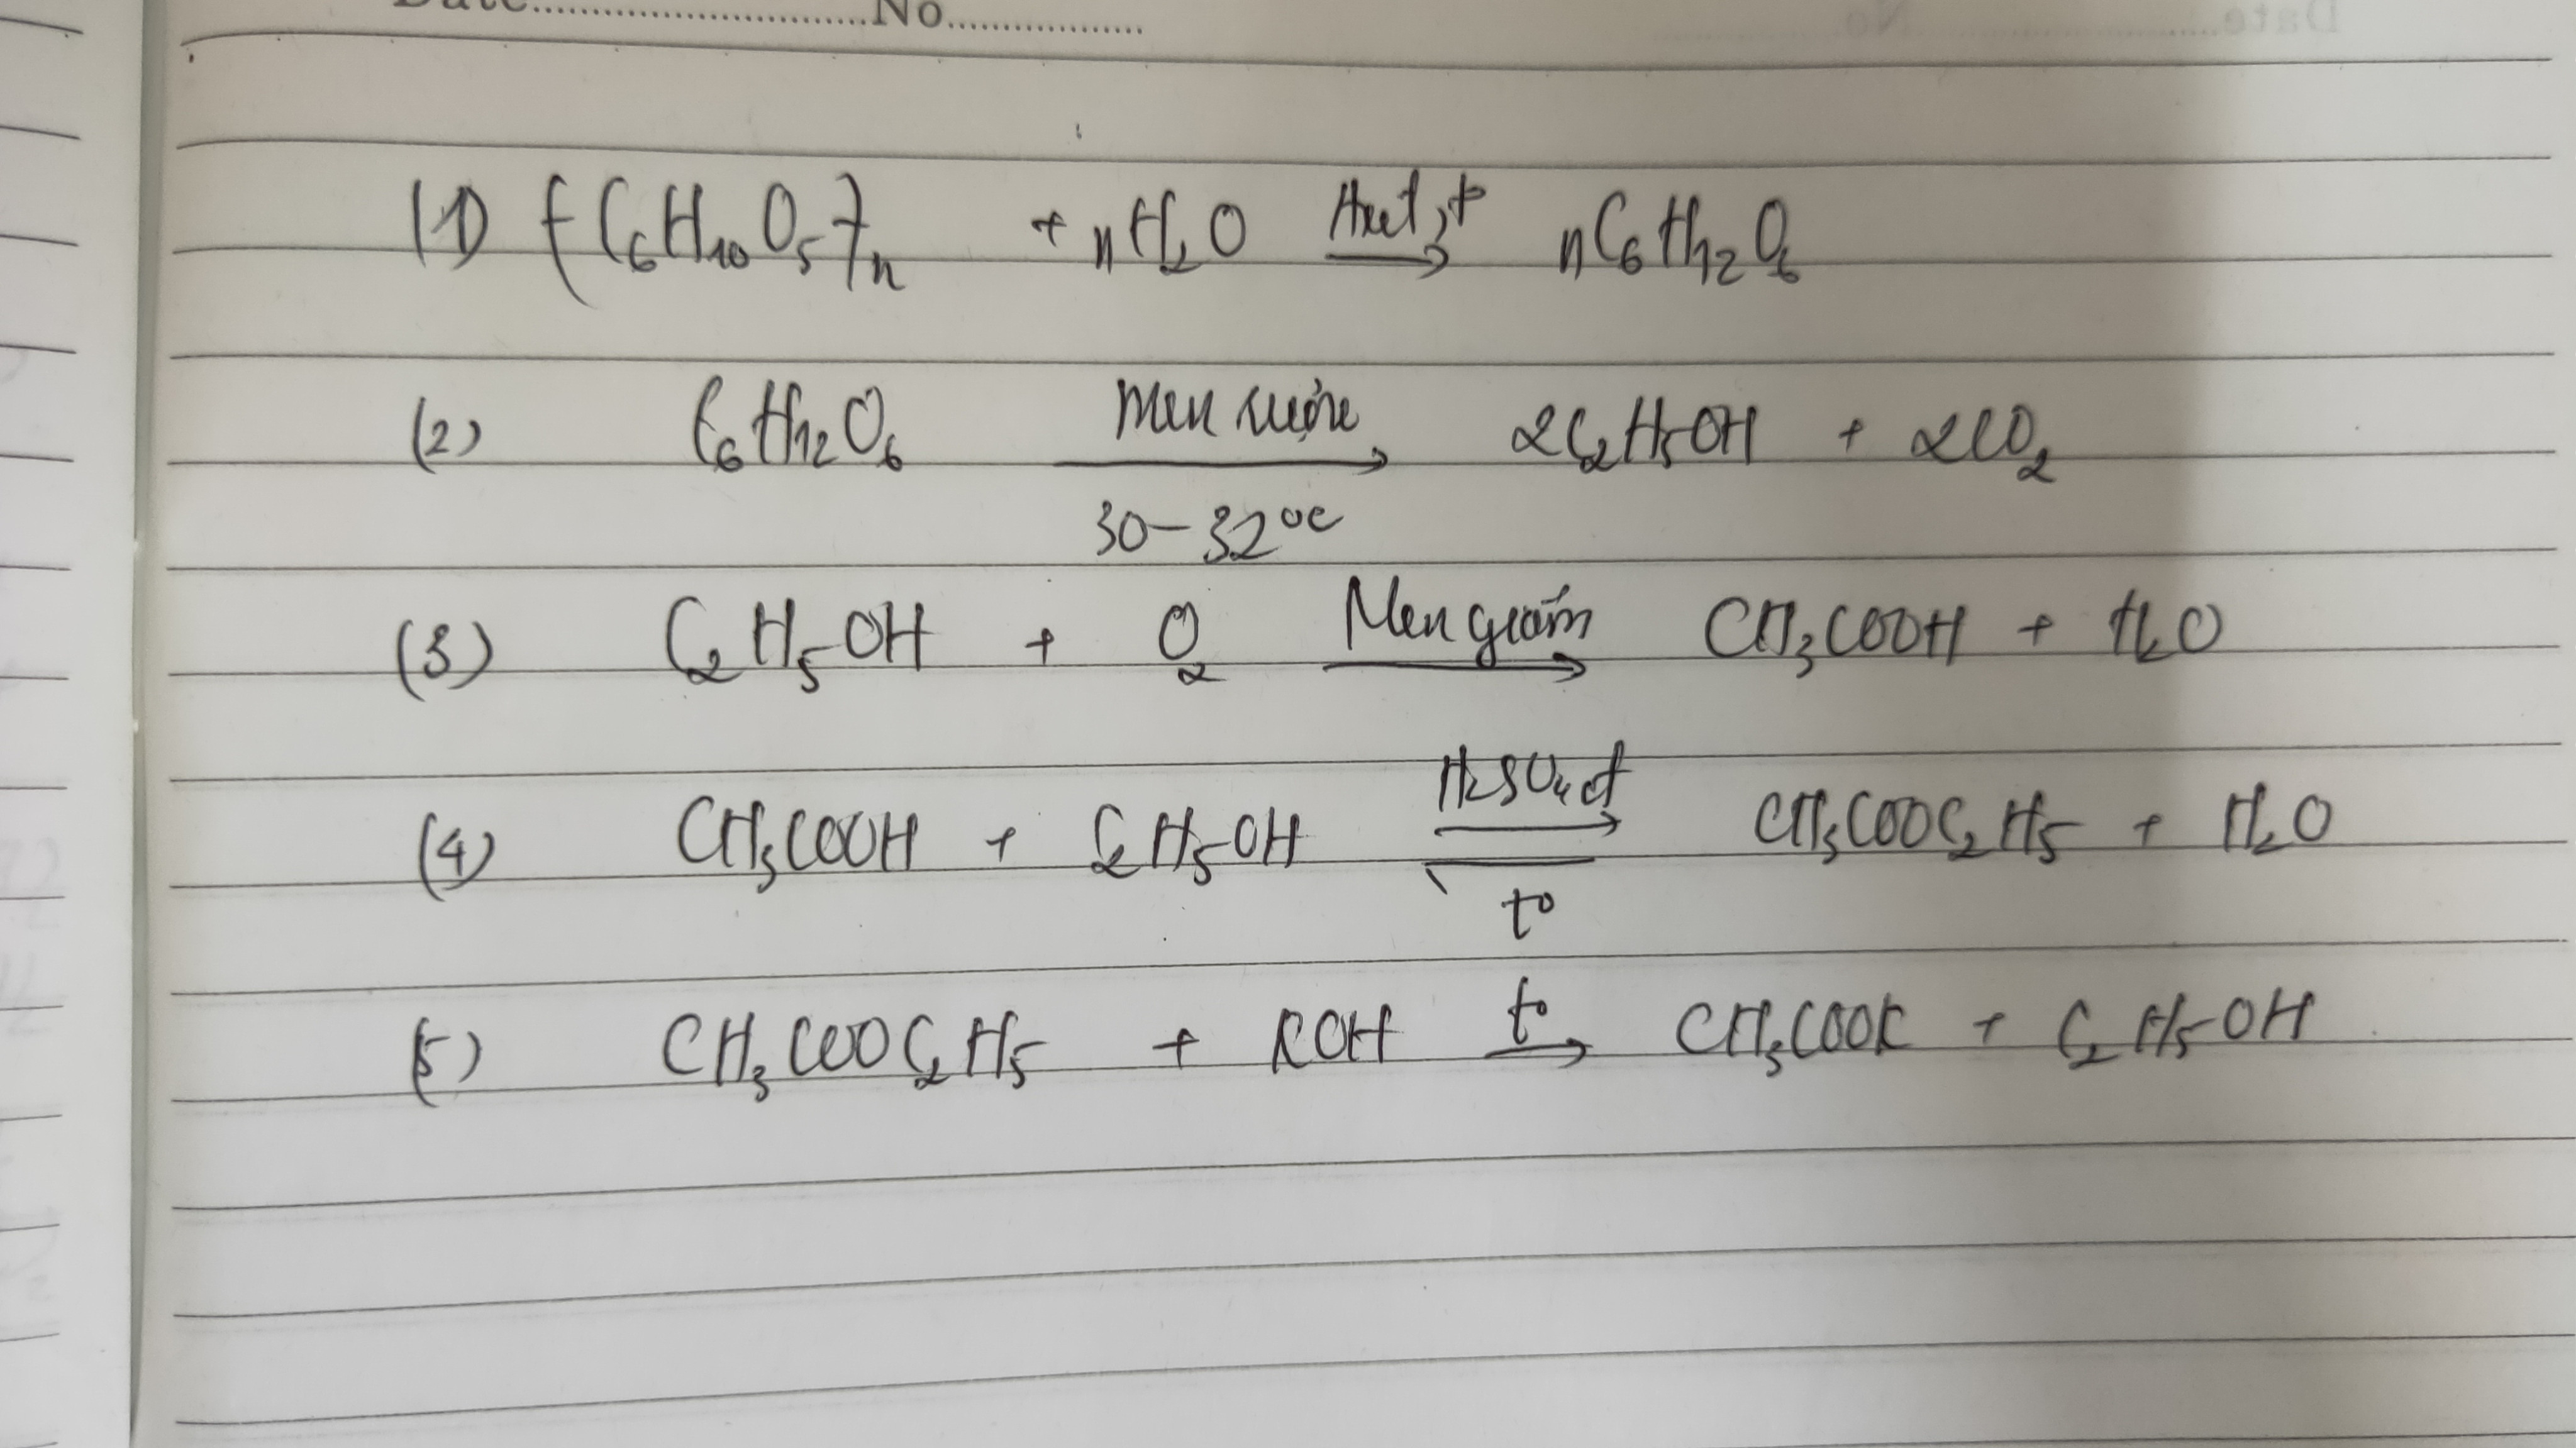 Date..............................No.................
(1) (C₆H₁₀O₅)ₙ + nH₂O Axit, t° → nC₆H₁₂O₆
(2) C₆H₁₂O₆ Men rượu → 2C₂H₅OH + 2CO₂
30-32°C
(3) C₂H₅OH + O₂ Men giấm → CH₃COOH + H₂O
(4) CH₃COOH + C₂H₅OH H₂SO₄ đ ⇌ CH₃COOC₂H₅ + H₂O
t°
(5) CH₃COOC₂H₅ + KOH t° → CH₃COOK + C₂H₅OH